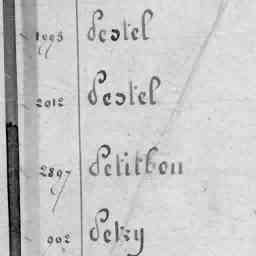 1993 Pestel
2012 Pestel
2897 Petitbon
902 Petry